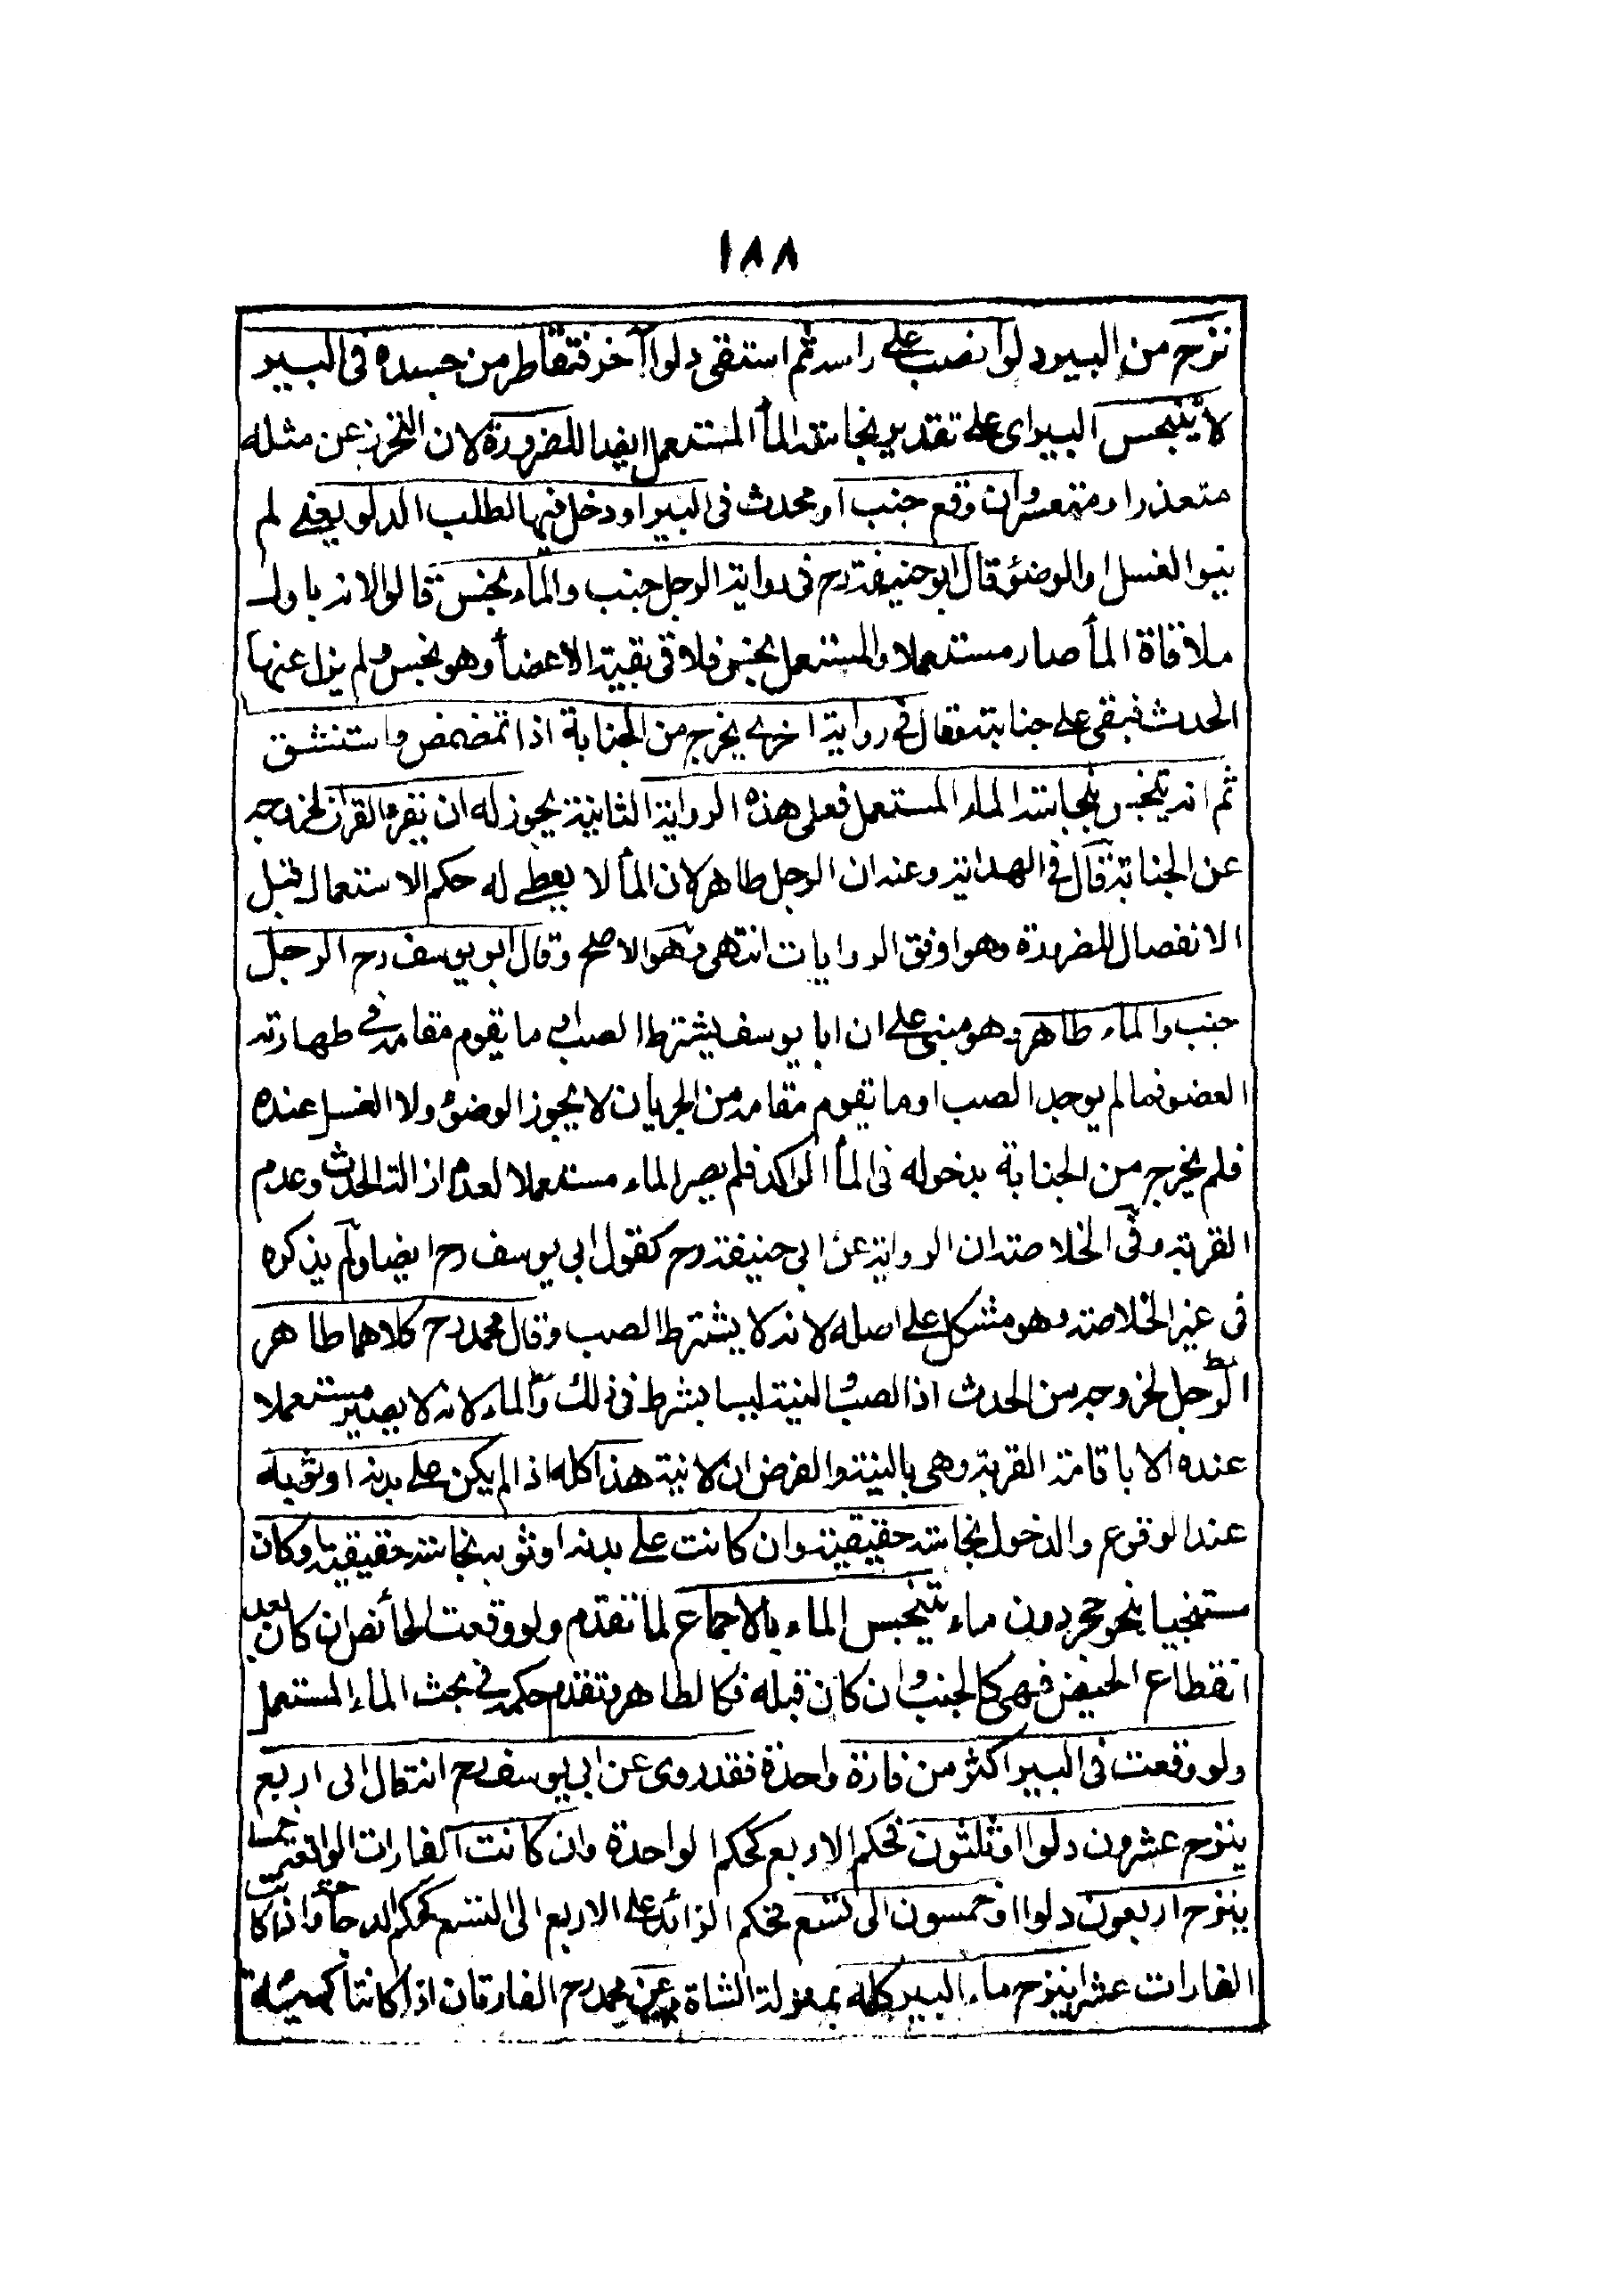 ١٨٨
نزح من البير دلوا نصب على راسه ثم استقى دلوا آخر فتقاطر من جسده فى البير
لا يتنجس البير اى على تقدير نجاسة المأ المستعمل ايضا للضرورة لان التحرز عن مثله
متعذر او متعسر وان وقع جنب او محدث فى البير او دخل فيها لطلب الدلو يعنى لم
ينو الغسل او الوضؤ قال ابو حنيفة رح فى رواية الرجل جنب والماء نجس قالوا لانه باول
ملاقاة المأ صار مستعملا والمستعمل نجس فلاقى بقية الاعضأ وهو نجس ولم يزل عنها
الحدث فبقى على جنابته وقال فى رواية اخرى يخرج من الجنابة اذا تمضمض واستنشق
ثم انه يتنجس بنجاسة الماء المستعمل فعلى هذه الرواية الثانية يجوز له ان يقرء القران لخروجه
عن الجنابة قال فى الهداية وعنه ان الرجل طاهر لان المأ لا يعطى له حكم الاستعمال قبل
الانفصال للضرورة وهو اوفق الروايات انتهى وهو الاصح وقال ابو يوسف رح الرجل
جنب والماء طاهر وهو مبنى على ان ابا يوسف يشترط الصب او ما يقوم مقامه فى طهارته
العضو فما لم يوجد الصب او ما يقوم مقامه من الجريان لا يجوز الوضؤ ولا الغسل عنده
فلم يخرج من الجنابة بدخوله فى المأ الراكد فلم يصر الماء مستعملا لعدم ازالته الحدث وعدم
القربة وفى الخلاصة ان الرواية عن ابى حنيفة رح كقول ابى يوسف رح ايضا ولم يذكره
فى غير الخلاصة وهو مشكل على اصله لانه لا يشترط الصب وقال محمد رح كلاهما طاهر
الرجل لخروجه من الحدث اذ الصب والنية ليسا بشرط فى ذلك والماء لانه لا يصير مستعملا
عنده الا باقامة القربة وهى بالنية والفرض ان لا نية هذا كله اذا لم يكن على بدنه او ثوبه
عند الوقوع والدخول نجاسة حقيقية وان كانت على بدنه او ثوبه نجاسة حقيقية او كان
مستنجيا بنحو حجر دون ماء يتنجس الماء بالاجماع لما تقدم ولو وقعت الحائض ان كان بعد
انقطاع الحيض فهى كالجنب وان كان قبله فكالطاهر وتقدم حكمه فى بحث الماء المستعمل
ولو وقعت فى البير اكثر من فارة واحدة فقد روى عن ابى يوسف رح انه قال الى اربع
ينزح عشرون دلوا او ثلثون فحكم الاربع كحكم الواحدة وان كانت الفارات الواقعة خمسا
ينزح اربعون دلوا او خمسون الى تسع فحكم الزائد على الاربع الى التسع كحكم الدجاجة واذا كانت
الفارات عشرا ينزح ماء البير كله بمنزلة الشاة وعن محمد رح الفارتان اذا كانتا كهيئة